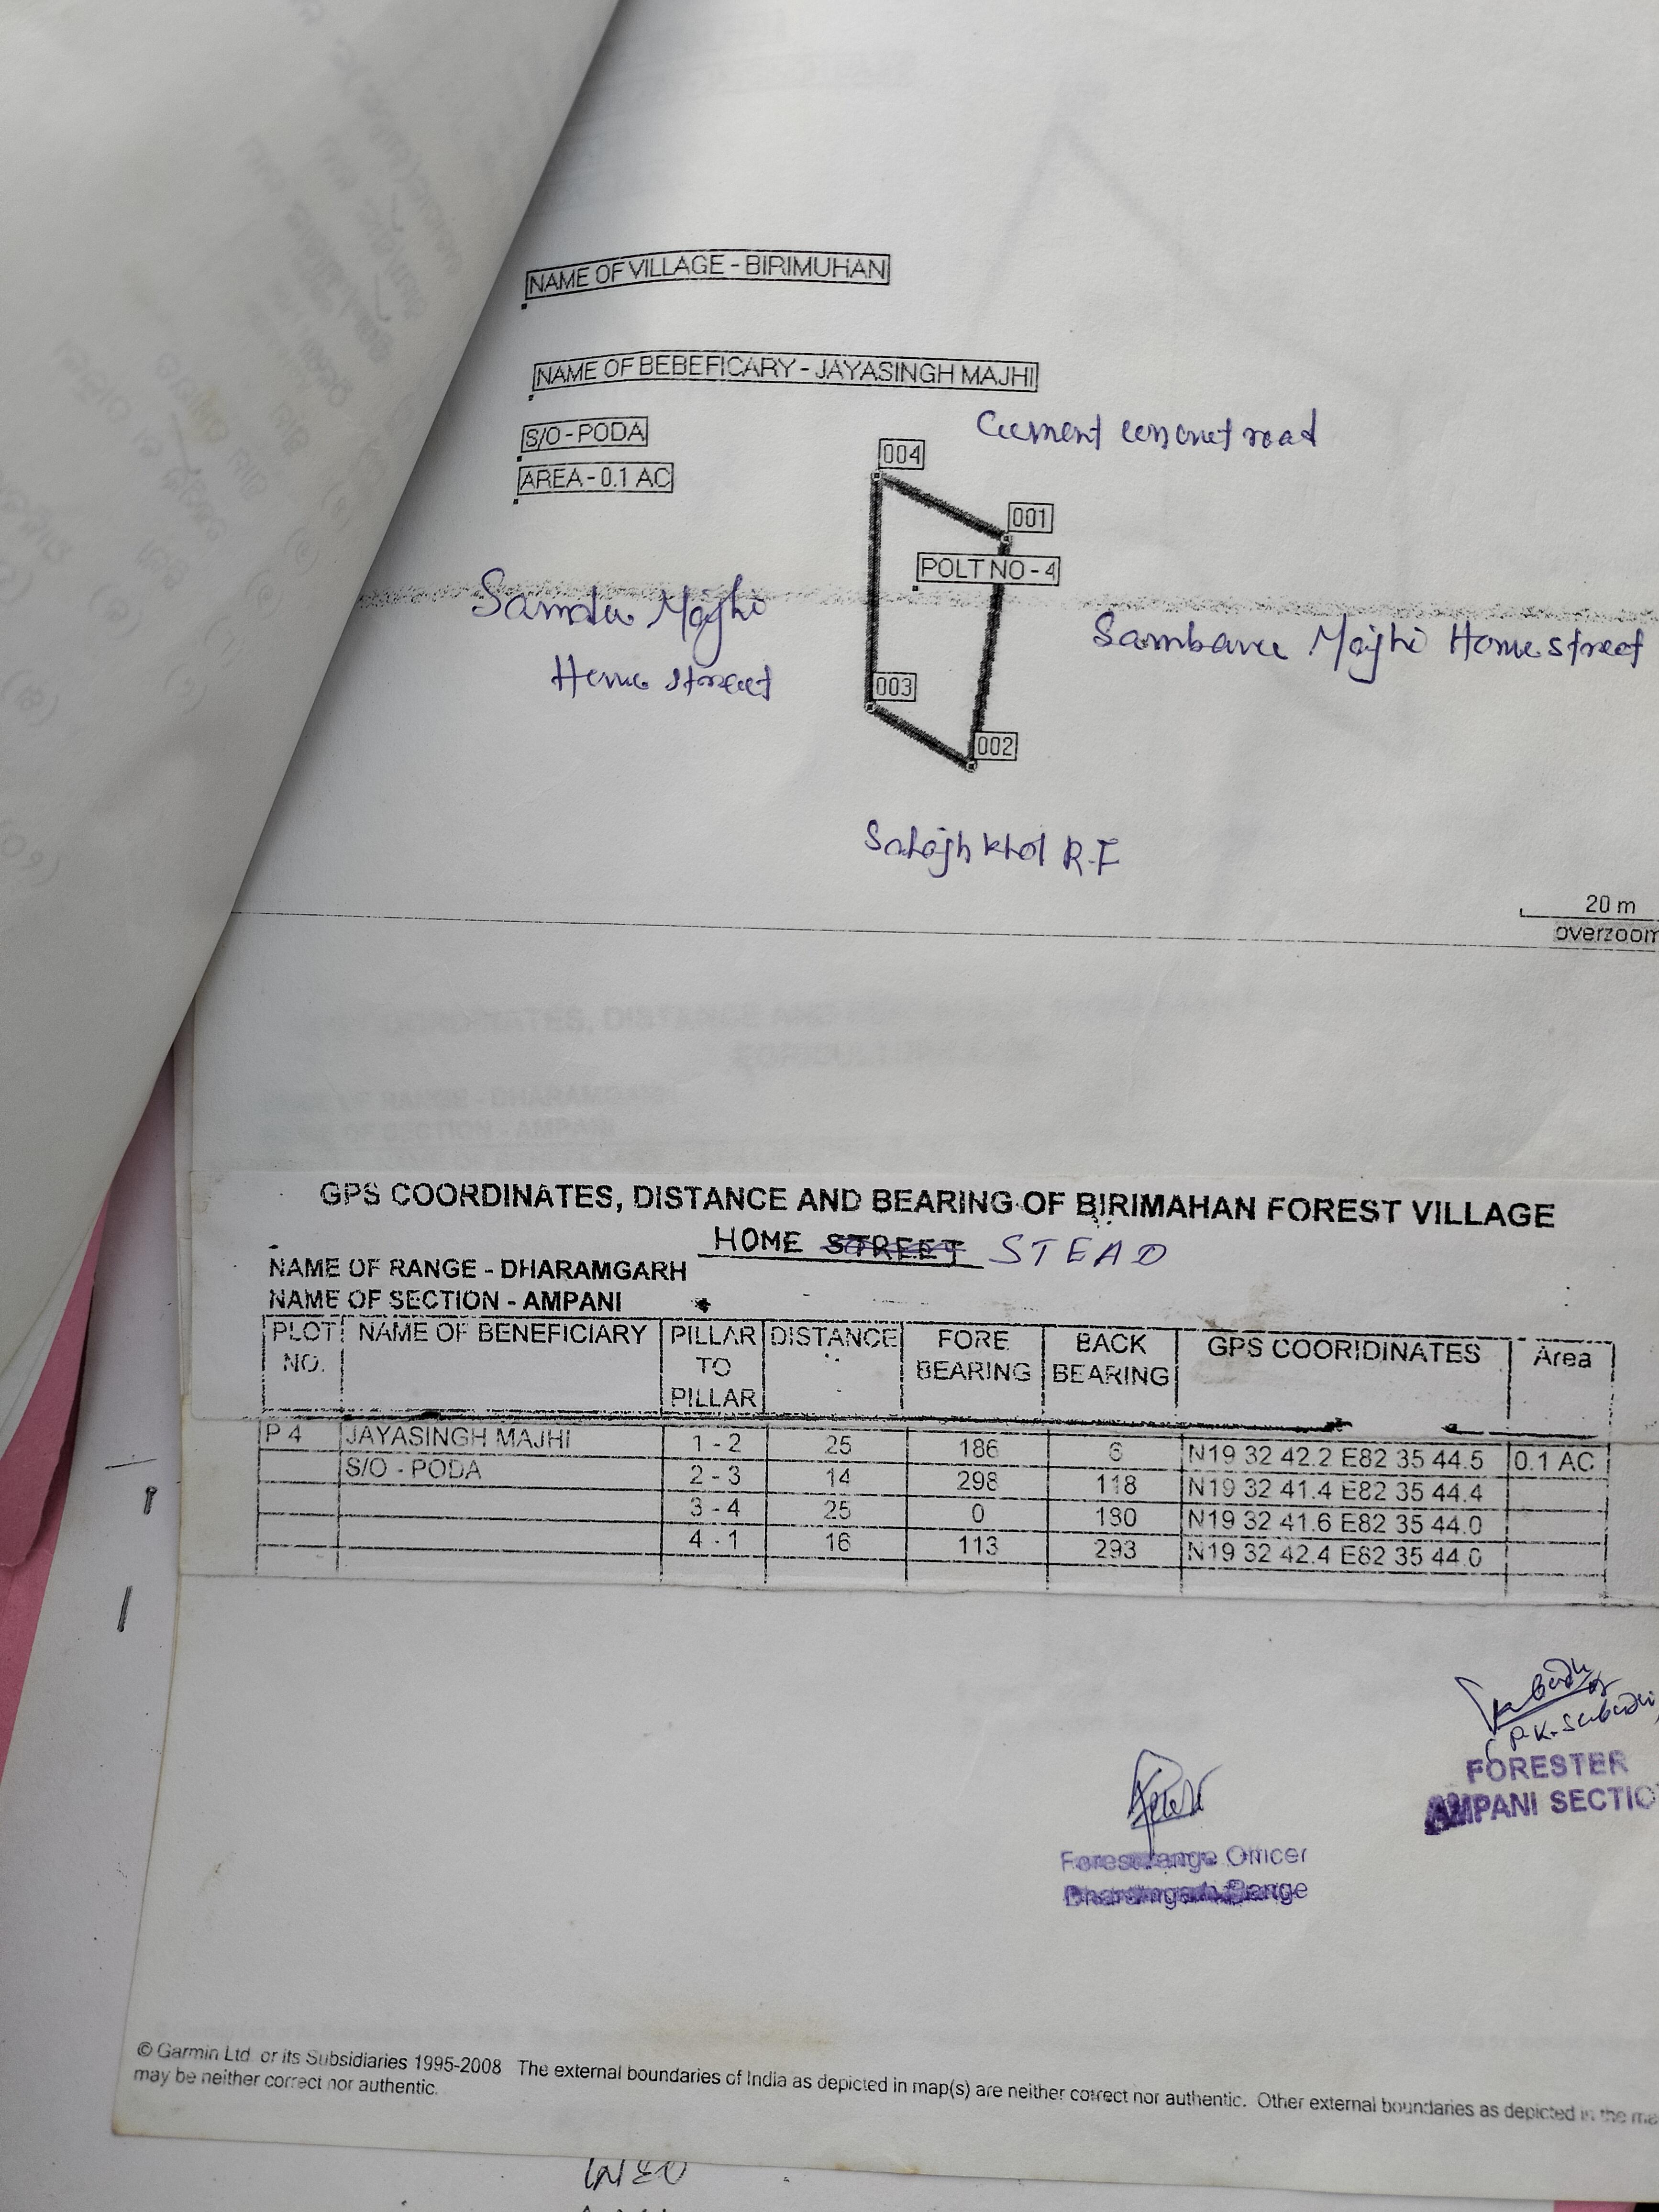 NAME OF VILLAGE - BIRIMUHAN
NAME OF BEBEFICARY - JAYASINGH MAJHI
S/O - PODA
AREA - 0.1 AC
Cument concret road
004
001
POLT NO - 4
Samdu Majhi
Home street
Sambaru Majhi Home street
003
002
Khol R.F
20 m
overzoom
GPS COORDINATES, DISTANCE AND BEARING OF BIRIMAHAN FOREST VILLAGE
HOME STREET STEAD
NAME OF RANGE - DHARAMGARH
NAME OF SECTION - AMPANI
PLOT NO. NAME OF BENEFICIARY PILLAR TO PILLAR DISTANCE FORE BEARING BACK BEARING GPS COORIDINATES Area
P 4 JAYASINGH MAJHI 1 - 2 25 186 6 N19 32 42.2 E82 35 44.5 0.1 AC
S/O - PODA 2 - 3 14 298 118 N19 32 41.4 E82 35 44.4
3 - 4 25 0 180 N19 32 41.6 E82 35 44.0
4 - 1 16 113 293 N19 32 42.4 E82 35 44.0
P.K. Subudhi
FORESTER
AMPANI SECTIO
Forest Range Officer
Dharamgarh Range
© Garmin Ltd or its Subsidiaries 1995-2008 The external boundaries of India as depicted in map(s) are neither correct nor authentic. Other external boundaries as depicted in the ma
may be neither correct nor authentic.